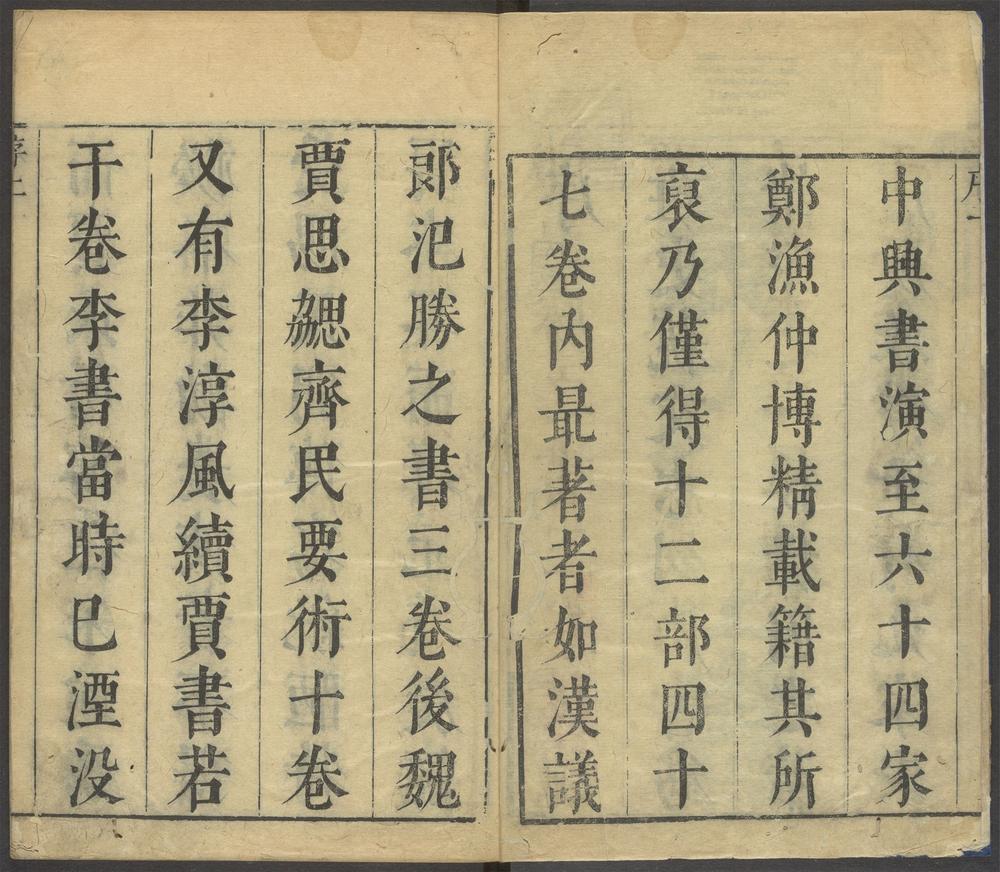 中興書演至六十四家
鄭漁仲博精載籍其所
裒乃僅得十二部四十
七卷內最著者如漢議
郎氾勝之書三卷後魏
賈思勰齊民要術十卷
又有李淳風續賈書若
干卷李書當時已湮没